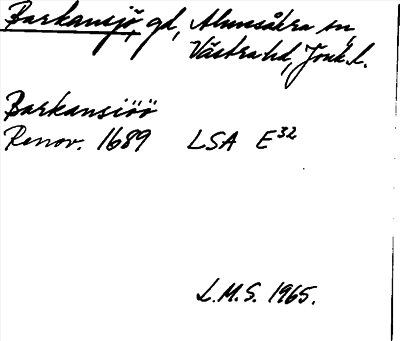 Barkansjö, gd, Almesåkra sn,
Västra hd, Jönk. l.
Barkansiöö
Renov. 1689 LSA E32
L.M.S. 1965.